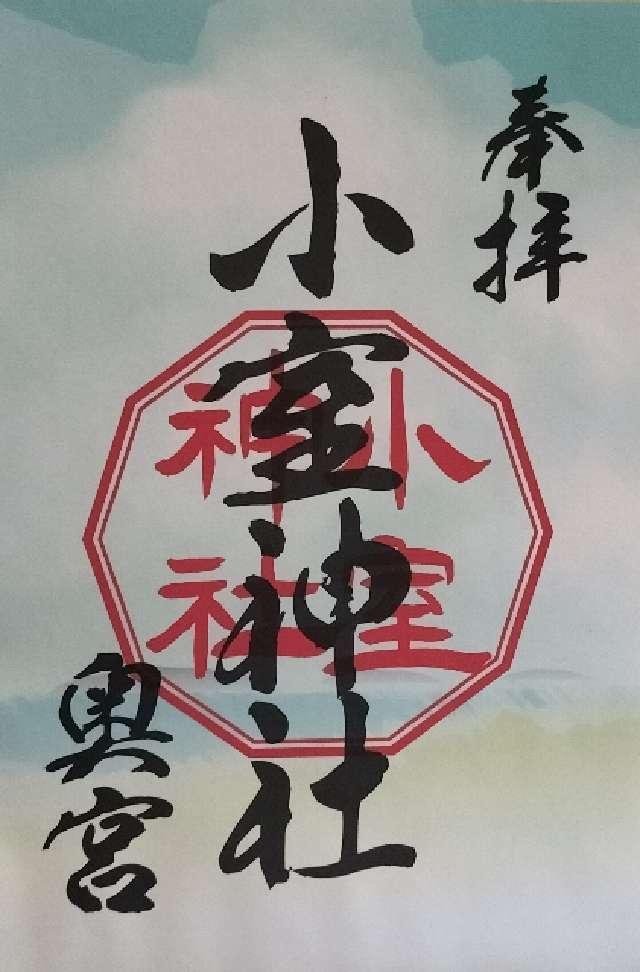 奉拝
小室神社
小室
神社
奥宮